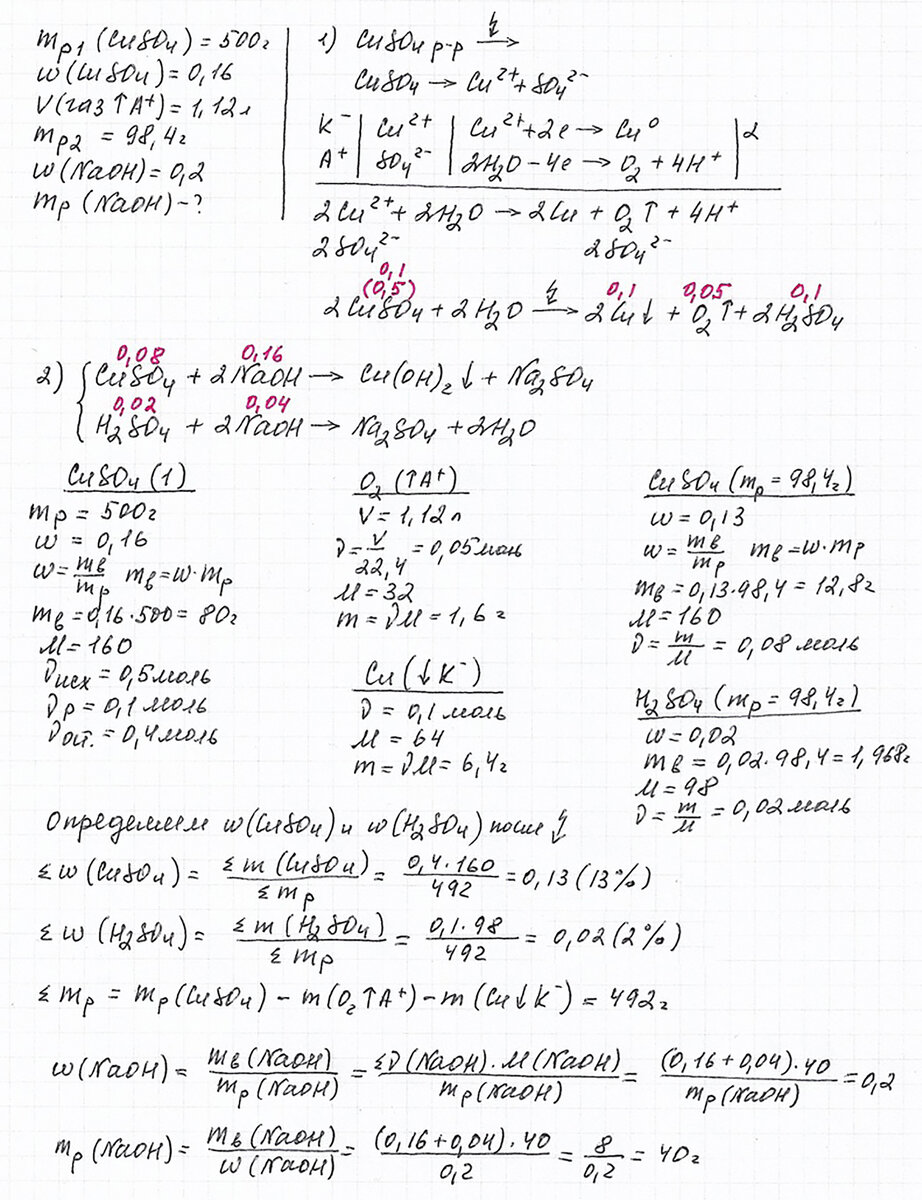 mр1 (CuSO4) = 500г
w(CuSO4) = 0,16
V(газ ↑A+) = 1,12л
mр2 = 98,4г
w(NaOH) = 0,2
mр (NaOH) - ?
1) CuSO4 р-р ↯→
CuSO4 → Cu²⁺ + SO4²⁻
K⁻ | Cu²⁺ | Cu²⁺ + 2e → Cu⁰ | 2
A⁺ | SO4²⁻ | 2H2O - 4e → O2 + 4H⁺ |
2Cu²⁺ + 2H2O → 2Cu + O2↑ + 4H⁺
2SO4²⁻ 2SO4²⁻
0,1
(0,5) 0,1 0,05 0,1
2CuSO4 + 2H2O ↯→ 2Cu↓ + O2↑ + 2H2SO4
0,08 0,16
2) { CuSO4 + 2NaOH → Cu(OH)2↓ + Na2SO4
0,02 0,04
H2SO4 + 2NaOH → Na2SO4 + 2H2O
CuSO4 (1)
mр = 500г
w = 0,16
w = mв/mр mв = w·mр
mв = 0,16·500 = 80г
M = 160
νисх = 0,5моль
νр = 0,1моль
νост. = 0,4моль
O2 (↑A⁺)
V = 1,12л
ν = V/22,4 = 0,05моль
M = 32
m = νM = 1,6г
Cu (↓K⁻)
ν = 0,1моль
M = 64
m = νM = 6,4г
CuSO4 (mр = 98,4г)
w = 0,13
w = mв/mр mв = w·mр
mв = 0,13·98,4 = 12,8г
M = 160
ν = m/M = 0,08 моль
H2SO4 (mр = 98,4г)
w = 0,02
mв = 0,02·98,4 = 1,968г
M = 98
ν = m/M = 0,02моль
Определяем w(CuSO4) и w(H2SO4) после ↯
Σw (CuSO4) = Σm (CuSO4)/Σmр = 0,4·160/492 = 0,13 (13%)
Σw (H2SO4) = Σm (H2SO4)/Σmр = 0,1·98/492 = 0,02 (2%)
Σmр = mр (CuSO4) - m(O2↑A⁺) - m(Cu↓K⁻) = 492г
w(NaOH) = mв(NaOH)/mр(NaOH) = Σν(NaOH)·M(NaOH)/mр(NaOH) = (0,16+0,04)·40/mр(NaOH) = 0,2
mр (NaOH) = mв(NaOH)/w(NaOH) = (0,16+0,04)·40/0,2 = 8/0,2 = 40г